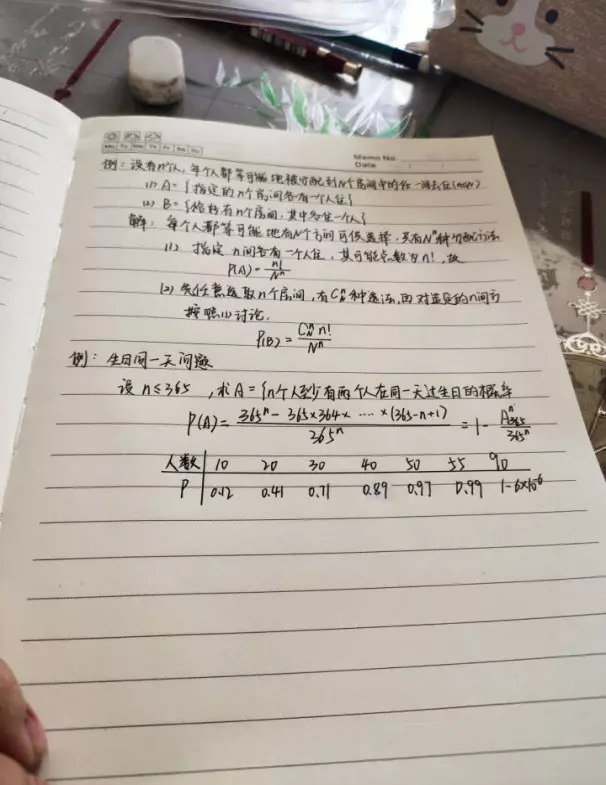 Mo Tu We Th Fr Sa Su
Memo No.
Date
例：设有n个人，每个人都等可能地被分配到N个房间中的任一间去住(n≤N)
(1) A={指定的n个房间各有一个人住}
(2) B={恰好有n个房间，其中各住一个人}
解：每个人都等可能地有N个房间可供选择，共有Nⁿ种分配方法
(1) 指定n间各有一个人住，其可能总数为n!，故
P(A)=n!/Nⁿ
(2) 先任意选取n个房间，有C_N^n种选法，因对选见的n间房
按照(1)讨论.
P(B)=C_N^n n!/Nⁿ
例：生日同一天问题
设 n≤365 ，求A={n个人至少有两个人在同一天过生日的概率
P(A)=(365ⁿ-365×364×····×(365-n+1))/365ⁿ=1-A_365^n/365ⁿ
人数 10 20 30 40 50 55 90
P 0.12 0.41 0.71 0.89 0.97 0.99 1-6×10⁻⁶